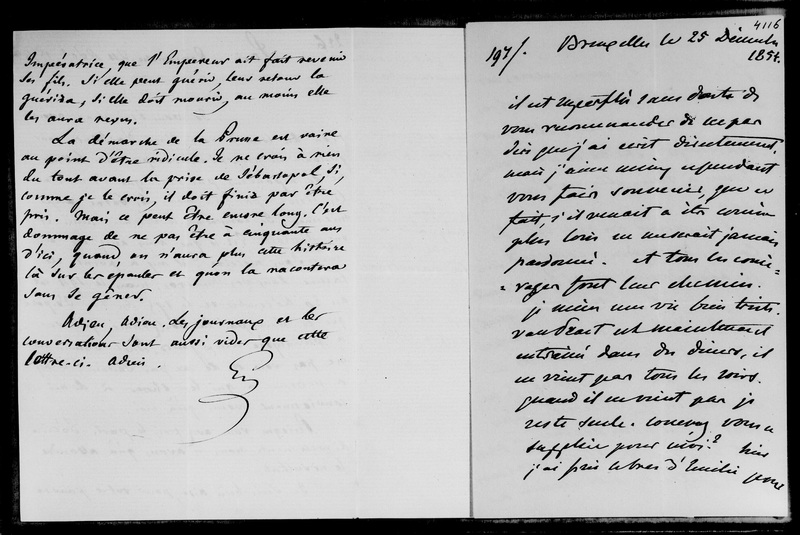 Impératrice, que l'Empereur ait fait revenir
ses fils. Si elle peut guérir, leur retour la
guérira, si elle doit mourir, au moins elle
les aura revus.
La démarche de la Prusse est vaine
au point d'être ridicule. Je ne crois à rien
du tout avant la prise de Sébastopol si,
comme je le crois, il doit finir par être
pris. Mais ce peut être encore long. C'est
dommage de ne pas être à cinquante ans
d'ici, quand on n'aura plus cette histoire
là sur les épaules et qu'on la racontera
sans se gêner.
Adieu, adieu. Les journaux et les
conversations sont aussi vides que cette
lettre-ci. Adieu.
4116
197/. Bruxelles le 25 Décembre
1854.
il est superflu sans doute de
vous recommander de ne pas
dire que j'ai écrit directement.
mais j'aime mieux cependant
vous faire souvenir, que ce
fait, s'il venait à être connu
plus loin ne me serait jamais
pardonné. et tous les
font leur chemin.
je mène une vie bien triste.
est maintenant
entraîné dans des diners, il
ne vient pas tous les soirs.
quand il ne vient pas je
reste seule. concevez vous ce
supplice pour moi? hier
j'ai pris le bras d'Emilie pour